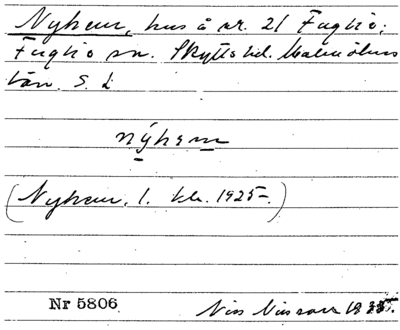 Nyhem, hus å nr. 21 Fuglie;
Fuglie sn. Skytts hd. Malmöhus
län. S. L
nýhem
(Nyhem. 1. kb. 1925.)
Nr 5806. Nils Nilsson 1935.